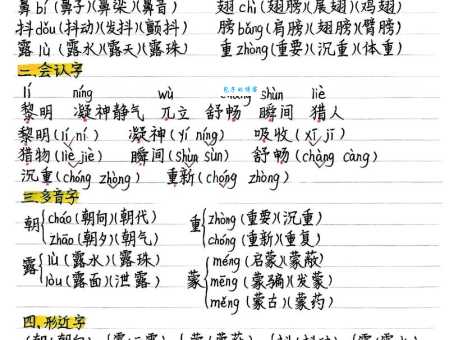 鼻 bí (鼻子)(鼻梁)(鼻音) 翅 chì (翅膀)(展翅)(鸡翅)
抖 dǒu (抖动)(发抖)(颤抖) 膀 bǎng (肩膀)(翅膀)(臂膀)
露 lù (露水)(露天)(露珠) 重 zhòng (重要)(沉重)(体重)
二.会认字
lí níng wù chàng shùn liè
黎明 凝神静气 兀立 舒畅 瞬间 猎人
黎明(lí ní) 凝神(yí níng) 吸收(xī jī)
猎物(liè jiè) 瞬间(shùn sùn) 舒畅(chàng càng)
沉重(chóng zhòng) 重新(chóng zhòng)
三.多音字
朝 cháo (朝向)(朝代) 重 zhòng (重要)(沉重)
zhāo (朝夕)(朝气) chóng (重新)(重复)
露 lù (露水)(露珠) 蒙 méng (启蒙)(蒙蔽)
lòu (露面)(泄露) mēng (蒙骗)(发蒙)
měng (蒙古)(蒙药)
四.形近字